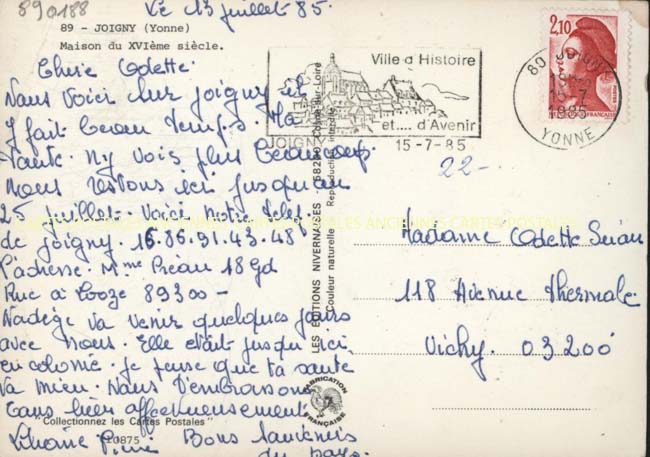 890188
Le 13 juillet 85
89 - JOIGNY (Yonne)
Maison du XVIème siècle.
Chère Odette.
Nous voici chez joigny et
y fait beau temps. Ma
tante. ny vois plus beaucoup.
nous restons ici jusquau
25 juillet. Voici notre
de joigny. 16.86.91.43.48
l'adresse. Mme Préau 18 Gd
Rue à 89300 -
Nadège va venir quelques jours
avec nous. Elle etait jusqu ici
en colonie. je pense que ta santé
va mieu. Nous t'embrassons
tous bien affectueusement
Collectionnez les Cartes Postales
10875
Bons souvenirs
du pays.
LES EDITIONS NIVERNAISES 58200 Cosne-sur-Loire
Couleur naturelle Reproduction interdite
FABRICATION FRANÇAISE
Ville d Histoire
et.... d'Avenir
JOIGNY
15-7-85
2,10
89 JOIGNY
15-7
1985
YONNE
22-
Madame Odette
118 Avenue Thermale.
Vichy. 03200
CARTES POSTALES ANCIENNES CARTES POSTALES